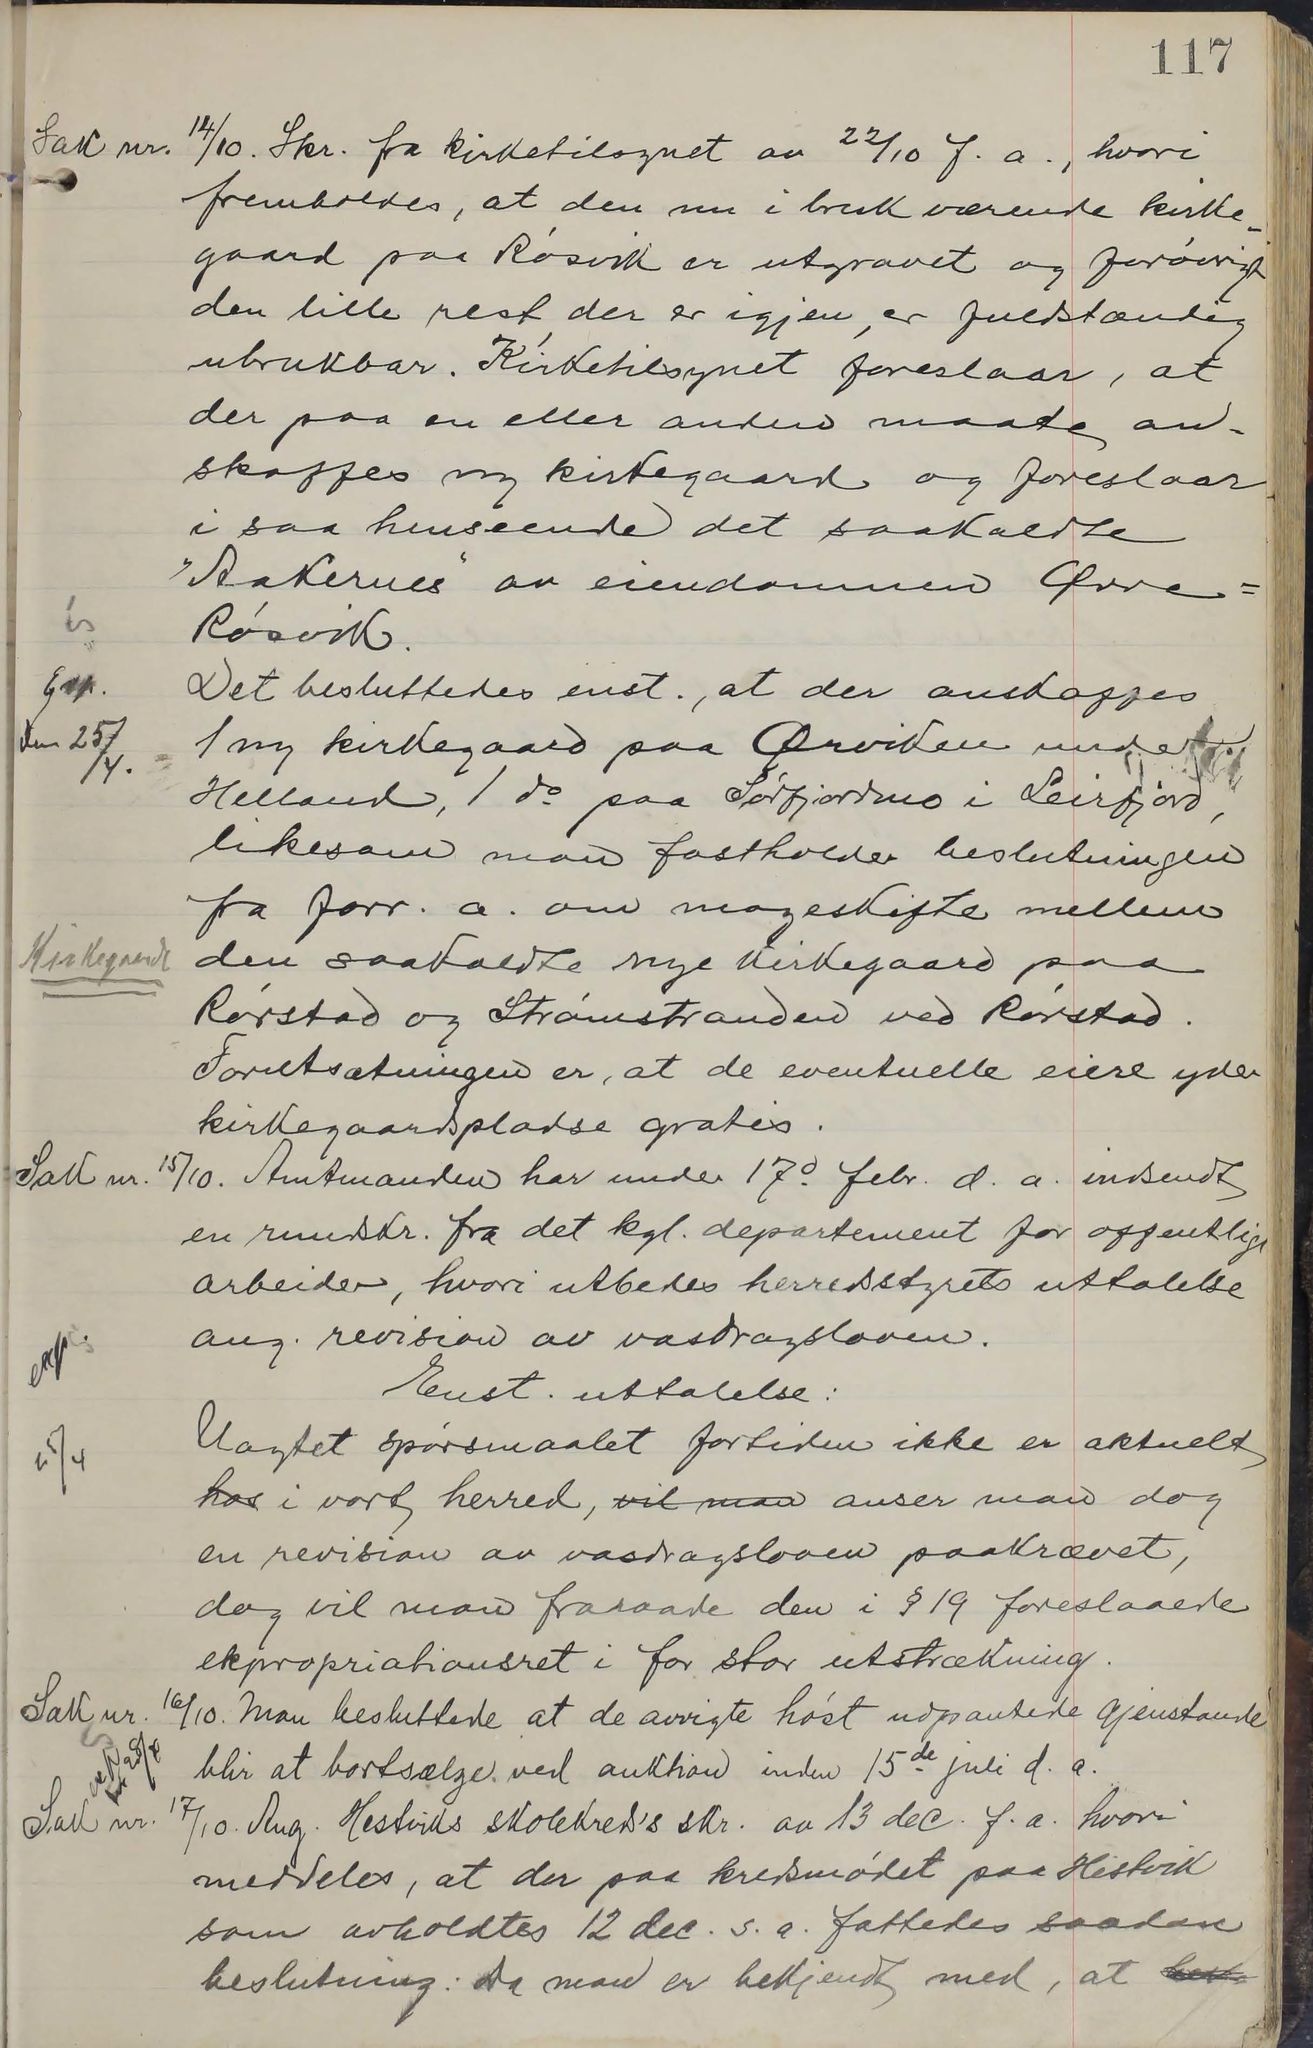 117
Sak nr. 14/10. Skr. fra kirketilsynet av 22/10 f. a., hvori
fremholdes, at den nu i bruk værende kirke-
gaard paa Røsvik er utgravet og forøvrigt
den lille rest, der er igjen, er fuldstændig
ubrukbar. Kirketilsynet foreslaar, at
der paa en eller anden maate an-
skaffes ny kirkegaard og foreslaar
i saa henseende det saakaldte
"Aakernes" av eiendommen Øvre=
Røsvik.
Exp. Det besluttedes enst., at der anskaffes
den 25/4. 1 ny kirkegaard paa Ørviken under
Helland, 1 do paa Sørfjordmo i Leirfjord,
likesom man fastholder beslutningen
fra forr. a. om mageskifte mellem
Kirkegaard den saakaldte nye kirkegaard paa
Rørstad og Strømstranden ved Rørstad.
Forutsætningen er, at de eventuelle eiere yder
kirkegaardspladse gratis.
Sak nr. 15/10. Amtmanden har under 17d. febr. d. a. indsendt
en rundskr. fra det kgl. departement for offentlige
arbeider, hvori utbedes herredsstyrets uttalelse
exp. ang. revision av vasdragsloven.
Enst. uttalelse:
25/4 Uagtet spørsmaalet fortiden ikke er aktuelt
hos i vort herred, vil man anser man dog
en revision av vasdragsloven paakrævet,
dog vil man fraraade den i § 19 foreslaaede
ekpropriationsret i for stor utstrækning.
Sak nr. 16/10. Man besluttede at de avvigte høst udpantede gjenstande
28/4 blir at bortsælge ved auktion inden 15de juli d. a.
Sak nr. 17/10. Ang. Hestviks skolekred's skr. av 13 dec. f. a. hvori
meddeles, at der paa kredsmødet paa Hestvik
som avholdtes 12 dec. s. a. fattedes saadan
beslutning: Da man er bekjendt med, at